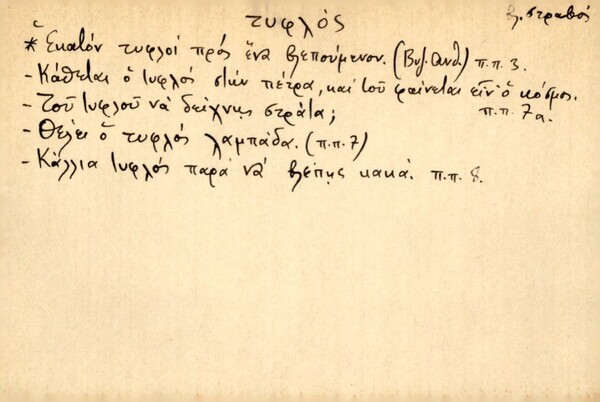 τυφλός
βλ. στραβός
* Ἑκατόν τυφλοί πρός ἕνα βλεπούμενον. (Βυζ. Ανθ.) π.π. 3.
- Κάθεται ὁ τυφλός στήν πέτρα, καί τοῦ φαίνεται εἶν' ὁ κόσμος. π.π. 7α.
- Τοῦ τυφλοῦ νά δείχνῃς στράτα;
- Θέλει ὁ τυφλός λαμπάδα. (π.π. 7)
- Κάλλια τυφλός παρά νά βλέπῃς κακά. π.π. 8.